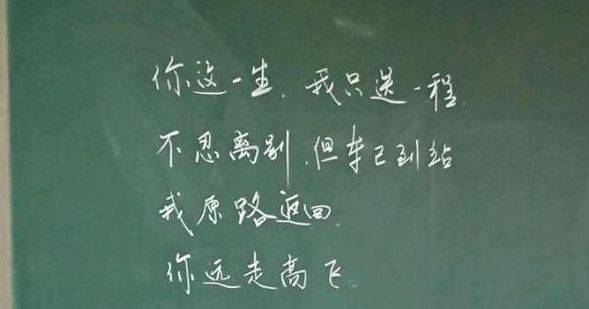 你这一生,我只送一程.
不忍离别,但车已到站
我原路返回.
你远走高飞.